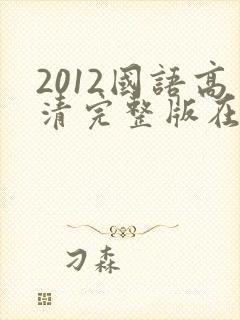 2012國語高
清完整版在
刁森